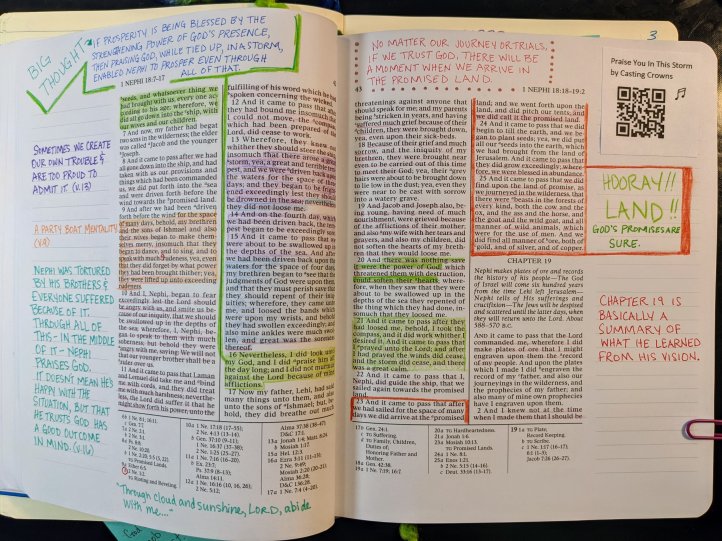 BIG
THOUGHT:
IF PROSPERITY IS BEING BLESSED BY THE
STRENGTHENING POWER OF GOD'S PRESENCE,
THEN PRAISING GOD, WHILE TIED UP, IN A STORM,
ENABLED NEPHI TO PROSPER EVEN THROUGH
ALL OF THAT.
1 NEPHI 18:7-17
SOMETIMES WE CREATE
OUR OWN TROUBLE &
ARE TOO PROUD TO
ADMIT IT. (V.13)
A PARTY BOAT MENTALITY
(V.9)
NEPHI WAS TORTURED
BY HIS BROTHERS &
EVERYONE SUFFERED
BECAUSE OF IT.
THROUGH ALL OF
THIS - IN THE MIDDLE
OF IT - NEPHI
PRAISES GOD.
IT DOESN'T MEAN HE'S
HAPPY WITH THE
SITUATION, BUT THAT
HE TRUSTS GOD HAS
A GOOD OUTCOME
IN MIND. (V.16)
seeds, and whatsoever thing we
had brought with us, every one ac-
cording to his age; wherefore, we
did all go down into the ship, with
our wives and our children.
7 And now, my father had begat
two sons in the wilderness; the elder
was called Jacob and the younger
Joseph.
8 And it came to pass after we had
all gone down into the ship, and had
taken with us our provisions and
things which had been commanded
us, we did put forth into the sea
and were driven forth before the
wind towards the promised land.
9 And after we had been driven
forth before the wind for the space
of many days, behold, my brethren
and the sons of Ishmael and also
their wives began to make them-
selves merry, insomuch that they
began to dance, and to sing, and to
speak with much rudeness, yea, even
that they did forget by what power
they had been brought thither; yea,
they were lifted up unto exceeding
rudeness.
10 And I, Nephi, began to fear
exceedingly lest the Lord should
be angry with us, and smite us be-
cause of our iniquity, that we should
be swallowed up in the depths of
the sea; wherefore, I, Nephi, be-
gan to speak to them with much
soberness; but behold they were
angry with me, saying: We will not
that our younger brother shall be a
ruler over us.
11 And it came to pass that Laman
and Lemuel did take me and bind
me with cords, and they did treat
me with much harshness; neverthe-
less, the Lord did suffer it that he
might show forth his power, unto the
fulfilling of his word which he had
spoken concerning the wicked.
12 And it came to pass that after
they had bound me insomuch that
I could not move, the compass,
which had been prepared of the
Lord, did cease to work.
13 Wherefore, they knew not
whither they should steer the ship,
insomuch that there arose a great
storm, yea, a great and terrible tem-
pest, and we were driven back upon
the waters for the space of three
days; and they began to be fright-
ened exceedingly lest they should
be drowned in the sea; nevertheless
they did not loose me.
14 And on the fourth day, which
we had been driven back, the tem-
pest began to be exceedingly sore.
15 And it came to pass that we
were about to be swallowed up in
the depths of the sea. And after
we had been driven back upon the
waters for the space of four days,
my brethren began to see that the
judgments of God were upon them,
and that they must perish save that
they should repent of their iniq-
uities; wherefore, they came unto
me, and loosed the bands which
were upon my wrists, and behold
they had swollen exceedingly; and
also mine ankles were much swol-
len, and great was the soreness
thereof.
16 Nevertheless, I did look unto
my God, and I did praise him all
the day long; and I did not murmur
against the Lord because of mine
afflictions.
17 Now my father, Lehi, had said
many things unto them, and also
unto the sons of Ishmael; but, be-
hold, they did breathe out much
"Through cloud and sunshine, LORD, abide
with me...."
NO MATTER OUR JOURNEY OR TRIALS,
IF WE TRUST GOD, THERE WILL BE
A MOMENT WHEN WE ARRIVE IN
THE PROMISED LAND.
43
1 NEPHI 18:18-19:2
threatenings against anyone that
should speak for me; and my parents
being stricken in years, and having
suffered much grief because of their
children, they were brought down,
yea, even upon their sick-beds.
18 Because of their grief and much
sorrow, and the iniquity of my
brethren, they were brought near
even to be carried out of this time
to meet their God; yea, their grey
hairs were about to be brought down
to lie low in the dust; yea, even they
were near to be cast with sorrow
into a watery grave.
19 And Jacob and Joseph also, be-
ing young, having need of much
nourishment, were grieved because
of the afflictions of their mother;
and also my wife with her tears and
prayers, and also my children, did
not soften the hearts of my breth-
ren that they would loose me.
20 And there was nothing save
it were the power of God, which
threatened them with destruction,
could soften their hearts; where-
fore, when they saw that they were
about to be swallowed up in the
depths of the sea they repented of
the thing which they had done, in-
somuch that they loosed me.
21 And it came to pass after they
had loosed me, behold, I took the
compass, and it did work whither I
desired it. And it came to pass that
I prayed unto the Lord; and after
I had prayed the winds did cease,
and the storm did cease, and there
was a great calm.
22 And it came to pass that I,
Nephi, did guide the ship, that we
sailed again towards the promised
land.
23 And it came to pass that after
we had sailed for the space of many
days we did arrive at the promised
land; and we went forth upon the
land, and did pitch our tents; and
we did call it the promised land.
24 And it came to pass that we did
begin to till the earth, and we be-
gan to plant seeds; yea, we did put
all our seeds into the earth, which
we had brought from the land of
Jerusalem. And it came to pass that
they did grow exceedingly; where-
fore, we were blessed in abundance.
25 And it came to pass that we did
find upon the land of promise, as
we journeyed in the wilderness, that
there were beasts in the forests of
every kind, both the cow and the
ox, and the ass and the horse, and
the goat and the wild goat, and all
manner of wild animals, which
were for the use of men. And we
did find all manner of ore, both of
gold, and of silver, and of copper.
CHAPTER 19
Nephi makes plates of ore and records
the history of his people—The God
of Israel will come six hundred years
from the time Lehi left Jerusalem—
Nephi tells of His sufferings and
crucifixion—The Jews will be despised
and scattered until the latter days, when
they will return unto the Lord. About
588–570 B.C.
And it came to pass that the Lord
commanded me, wherefore I did
make plates of ore that I might
engraven upon them the record
of my people. And upon the plates
which I made I did engraven the
record of my father, and also our
journeyings in the wilderness, and
the prophecies of my father; and
also many of mine own prophecies
have I engraven upon them.
2 And I knew not at the time
when I made them that I should be
3
Praise You In This Storm
by Casting Crowns
HOORAY!!
LAND!!
GOD'S PROMISES ARE
SURE.
CHAPTER 19 IS
BASICALLY A
SUMMARY OF
WHAT HE LEARNED
FROM HIS VISION.